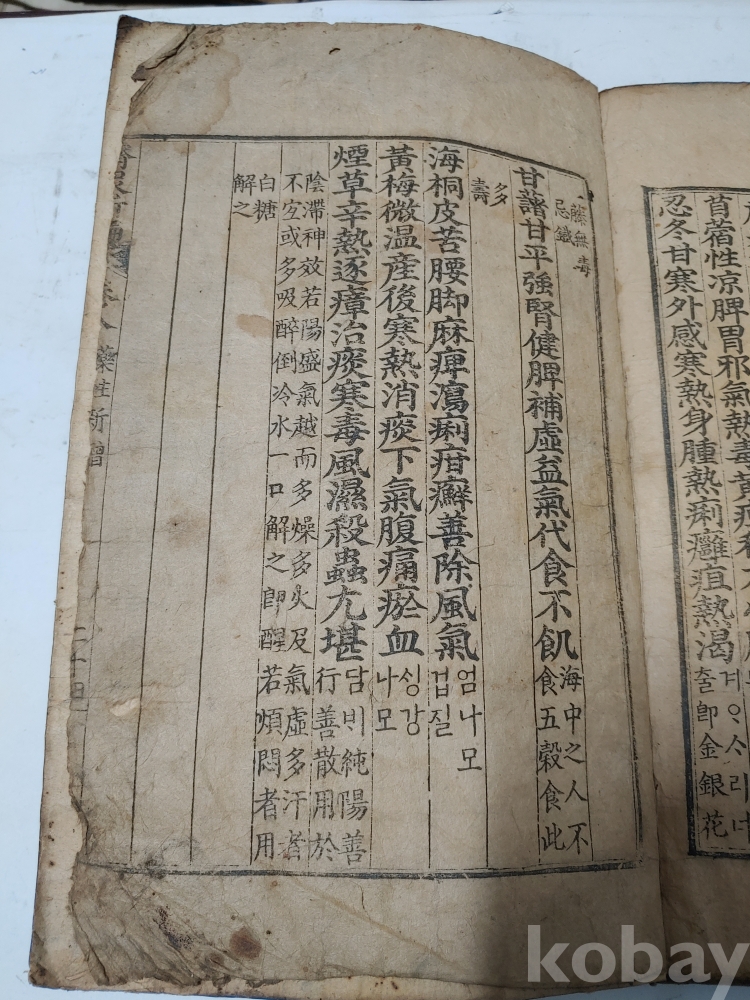 苜蓿性凉脾胃邪氣熱毒黃疸
忍冬甘寒外感寒熱身腫熱痢癰疽熱渴
겨ᄋᆞᄉᆞ리너
출即金銀花
藤無毒
忌鐵
甘藷甘平強腎健脾補虛益氣代食不飢
海中之人不
食五穀食此
多
壽
海桐皮苦腰脚麻痺瀉痢疳癬善除風氣
엄나모
겁질
黃梅微温産後寒熱消痰下氣腹痛瘀血
싱강
나모
煙草辛熱逐瘴治痰寒毒風濕殺蟲尤堪
담비純陽善
行善散用於
陰滯神效若陽盛氣越而多燥多火及氣虛多汗者
不空或多吸醉倒冷水一口解之卽醒若煩悶者用
白糖
解之
藥性新增
kobay